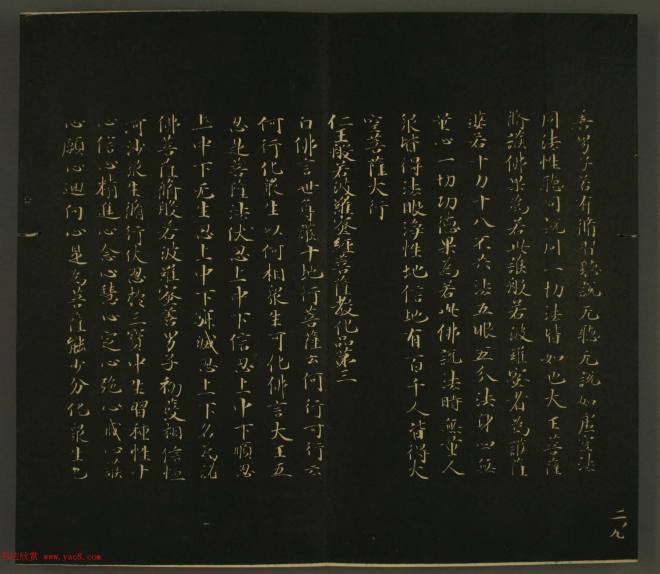 善男子若有修習聽說无聽无說如虛空法
同法性聽同說同一切法皆如也大王菩薩
脩護佛果為若此護般若波羅蜜者為護薩
婆若十力十八不共法五眼五分法身四無
量心一切功德果為若此佛說法時無量人
眾皆得法眼淨性地信地有百千人皆得大
空菩薩大行
仁王般若波羅蜜經菩薩教化品第三
白佛言世尊護十地行菩薩云何行可行云
何行化眾生以何相眾生可化佛言大王五
忍是菩薩法伏忍上中下信忍上中下順忍
上中下无生忍上中下寂滅忍上下名為諸
佛菩薩脩般若波羅蜜善男子初發相信恒
河沙眾生脩行伏忍於三寶中生習種性十
心信心精進心念心慧心定心施心戒心護
心願心迴向心是為菩薩能少分化眾生已
二、九
书法欣赏 www.yac8.com